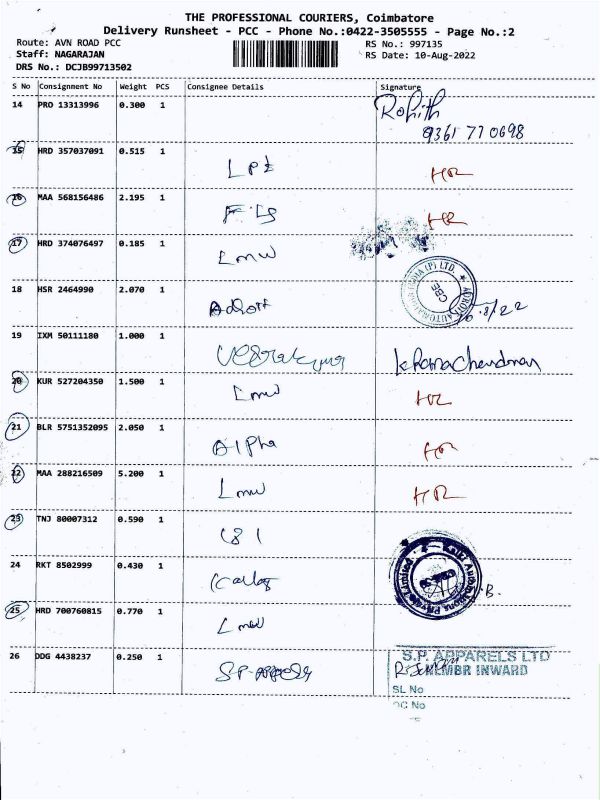 THE PROFESSIONAL COURIERS, Coimbatore
Delivery Runsheet - PCC - Phone No.:0422-3505555 - Page No.:2
Route: AVN ROAD PCC
RS No.: 997135
Staff: NAGARAJAN
RS Date: 10-Aug-2022
DRS No.: DCJB99713502
S No Consignment No Weight PCS Consignee Details Signature
14 PRO 13313996 0.300 1 Rohith
9361 770698
15 HRD 357037091 0.515 1
LPE HR
16 MAA 568156486 2.195 1
HR
17 HRD 374076497 0.185 1
Lmw
18 HSR 2464990 2.070 1
8/22
19 IXM 50111180 1.000 1
20 KUR 527204350 1.500 1
Lmw HR
21 BLR 5751352095 2.050 1
Alpha HR
22 MAA 288216509 5.200 1
Lmw HR
23 TNJ 80007312 0.590 1
24 RKT 8502999 0.430 1
25 HRD 700760815 0.770 1
Lmw
26 DDG 4438237 0.250 1
S.P. APPARELS LTD
INWARD
SL No
DC No